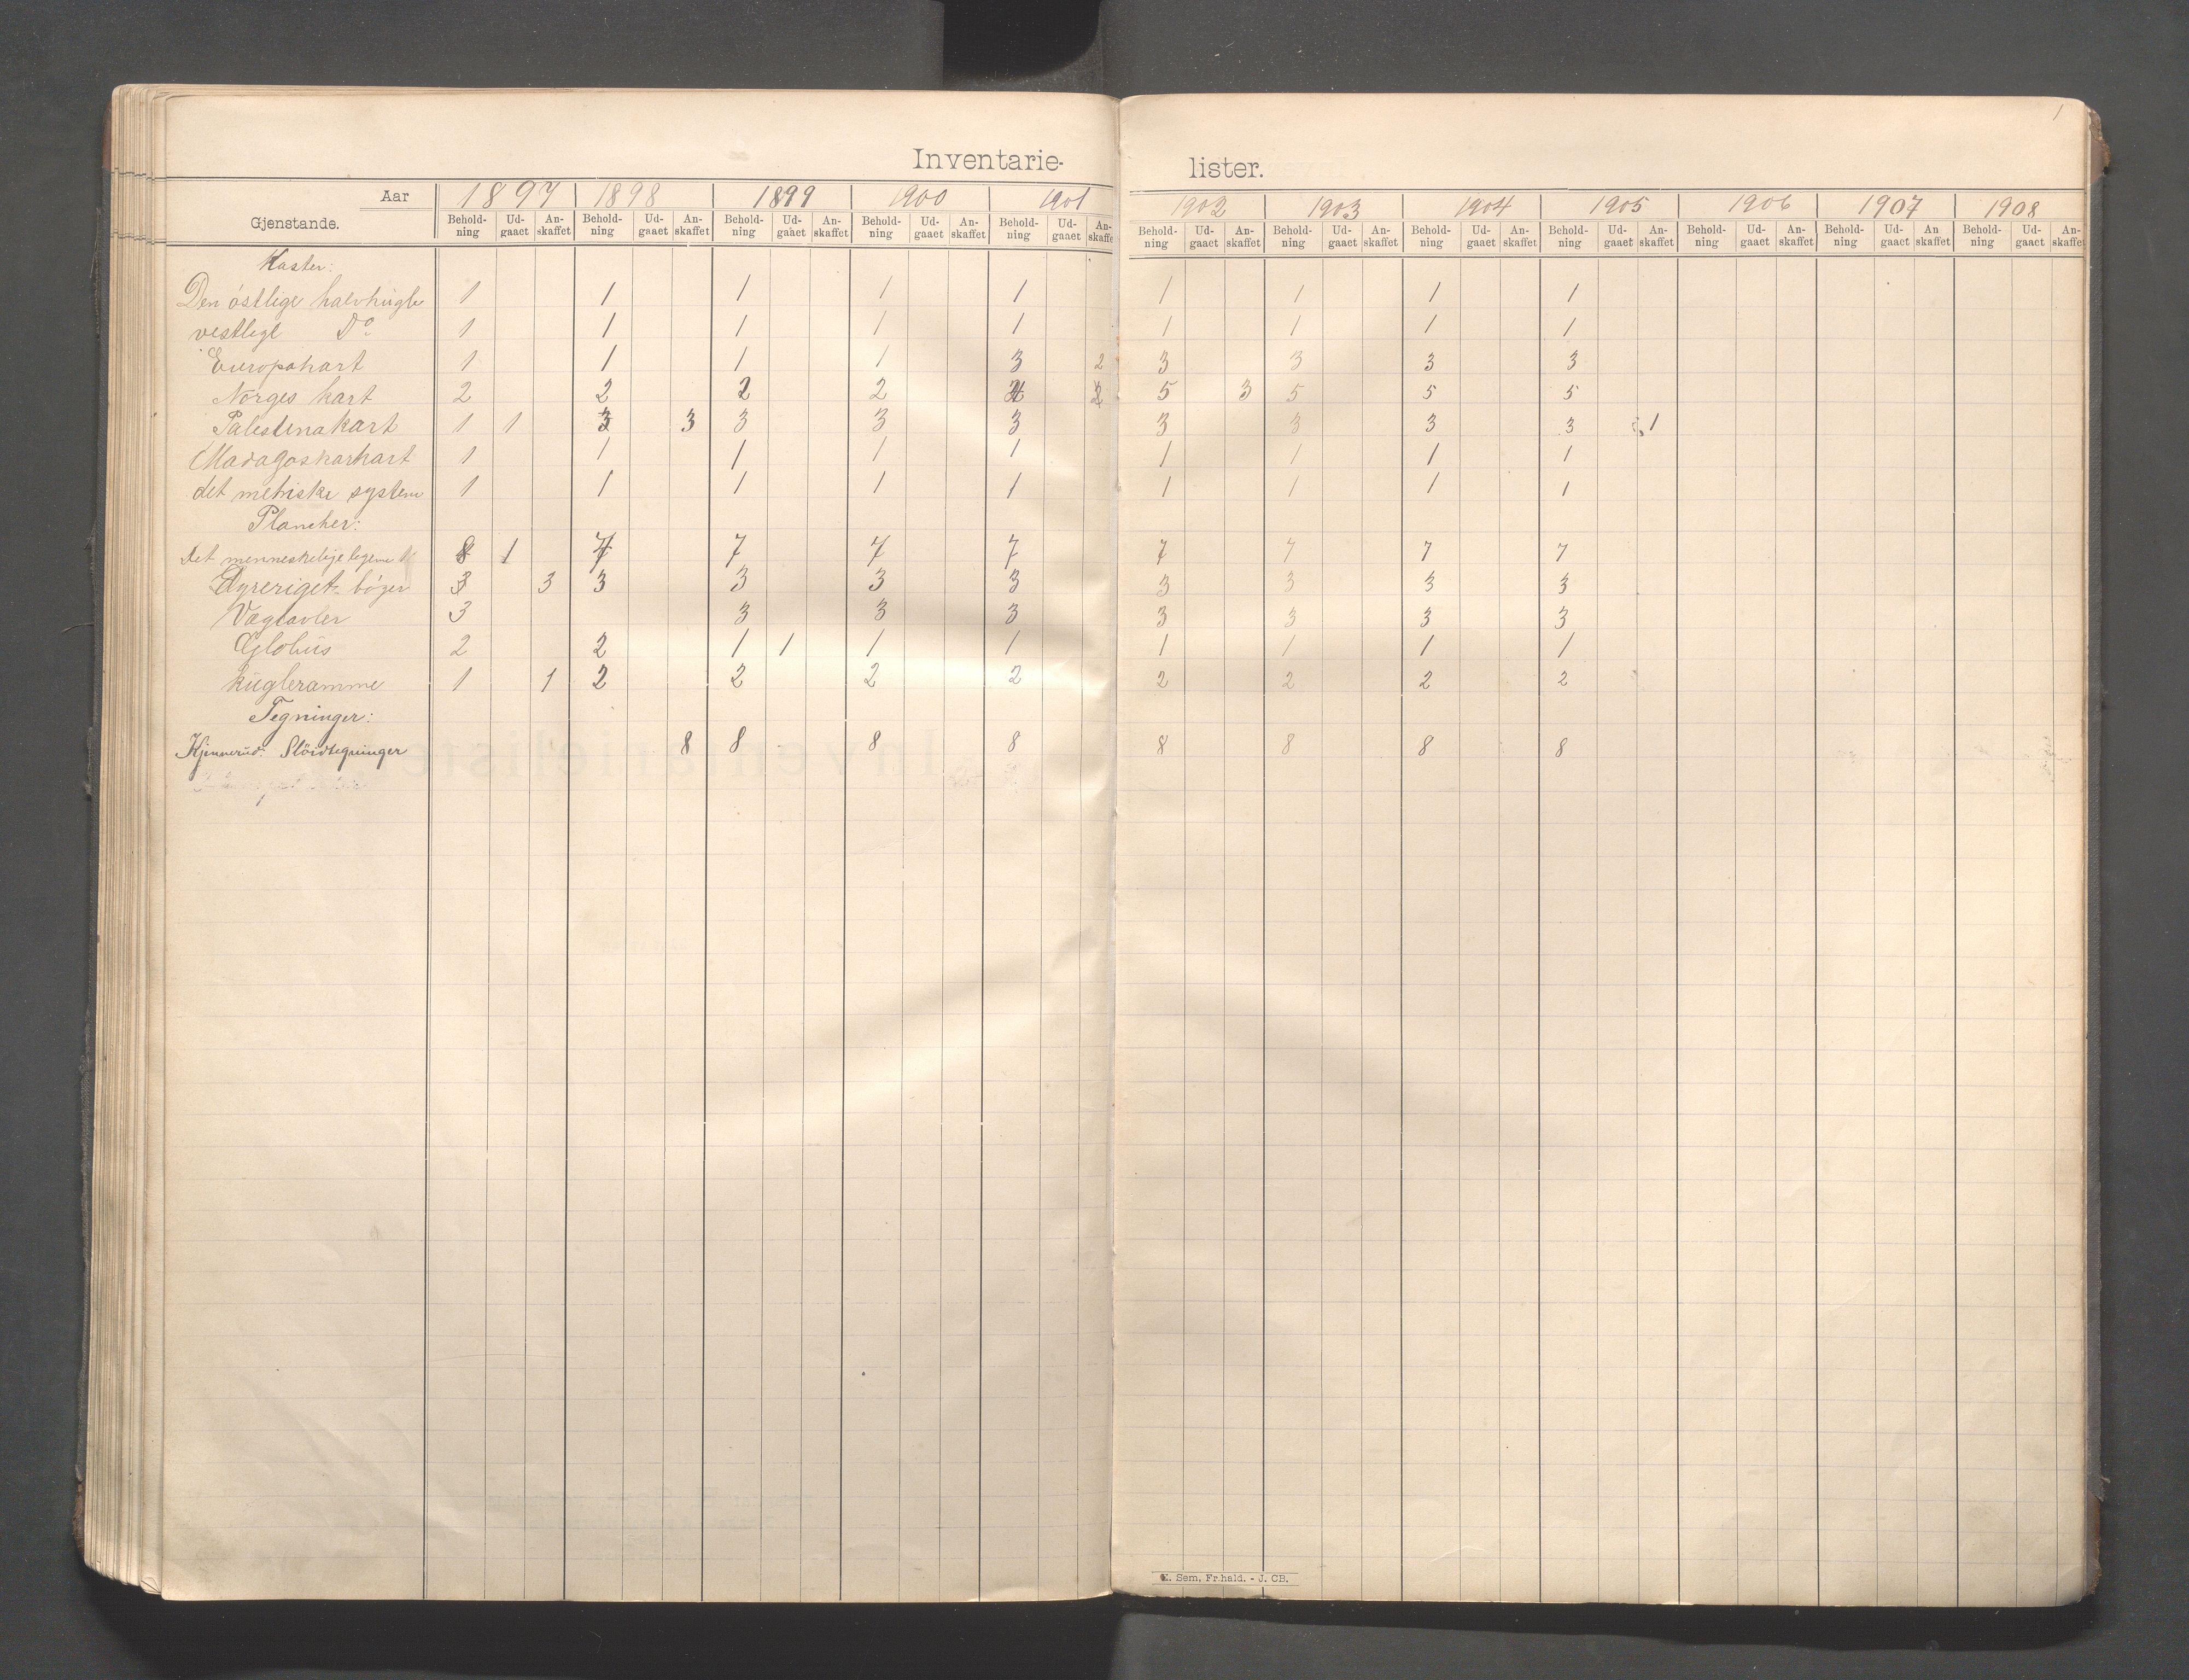 1
Inventarie- lister.
Aar 1897 1898 1899 1900 1901 1902 1903 1904 1905 1906 1907 1908
Gjenstande. Behold-ning Ud-gaaet An-skaffet Behold-ning Ud-gaaet An-skaffet Behold-ning Ud-gaaet An-skaffet Behold-ning Ud-gaaet An-skaffet Behold-ning Ud-gaaet An-skaffe Behold-ning Ud-gaaet An-skaffet Behold-ning Ud-gaaet An-skaffet Behold-ning Ud-gaaet An-skaffet Behold-ning Ud-gaaet An-skaffet Behold-ning Ud-gaaet An-skaffet Behold-ning Ud-gaaet An skaffet Behold-ning Ud-gaaet An-skaffet
Karter:
Den östlige halvkugle 1 1 1 1 1 1 1 1 1
vestlige Do 1 1 1 1 1 1 1 1 1
Europakart 1 1 1 1 3 2 3 3 3 3
Norges kart 2 2 2 2 5 3 5 5 5
Palestinakart 1 1 3 3 3 3 3 3 3 3 3 1
Madagaskarkart 1 1 1 1 1 1 1 1 1
det metriske system 1 1 1 1 1 1 1 1 1
Plancher:
Det menneskelige legeme 8 1 7 7 7 7 7 7 7 7
Dyreriget bøger 3 3 3 3 3 3 3 3 3 3
Vægtavler 3 3 3 3 3 3 3 3
Globus 2 2 1 1 1 1 1 1 1 1
kugleramme 1 1 2 2 2 2 2 2 2 2
Tegninger:
Kjennerud. Slöidtegninger 8 8 8 8 8 8 8 8
E. Sem, Fr.hald. - J. CB.